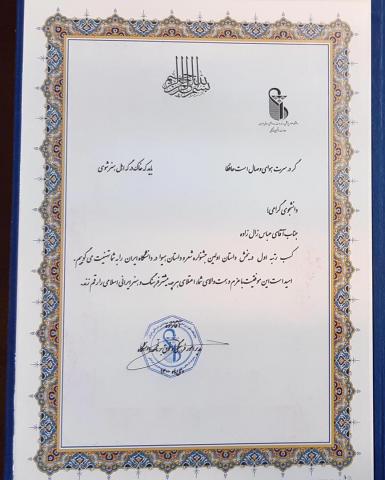 بسم الله الرحمن الرحیم
گر در سرت هوای وصال است حافظا
باید که خاک درگه اهل هنر شوی
دانشجوی گرامی
جناب آقای عباس زال زاده
کسب رتبه اول در بخش داستان اولین جشنواره شعر و داستان هیوا در دانشگاه ایران را به شما تهنیت می گوییم.
امید است این موفقیت با عزم و همت والای شما، اعتلای هر چه بیشتر فرهنگ و هنر ایرانی اسلامی را رقم زند.